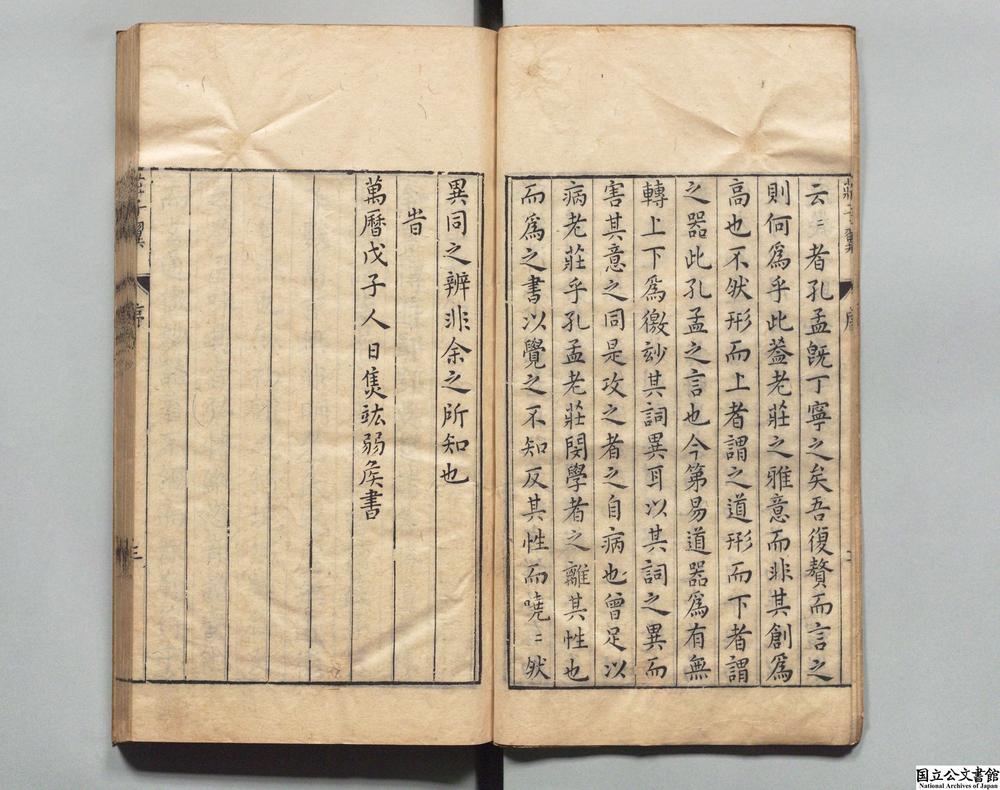 云〻者孔孟既丁寧之矣吾復贅而言之
則何爲乎此葢老莊之雅意而非其創爲
高也不然形而上者謂之道形而下者謂
之器此孔孟之言也今第易道器爲有無
轉上下爲徼玅其詞異耳以其詞之異而
害其意之同是攻之者之自病也曾足以
病老莊乎孔孟老莊閔學者之離其性也
而爲之書以覺之不知反其性而嘵〻然
異同之辨非余之所知也
旹
萬曆戊子人日焦竑弱矦書
莊子翼
序
三
国立公文書館
National Archives of Japan